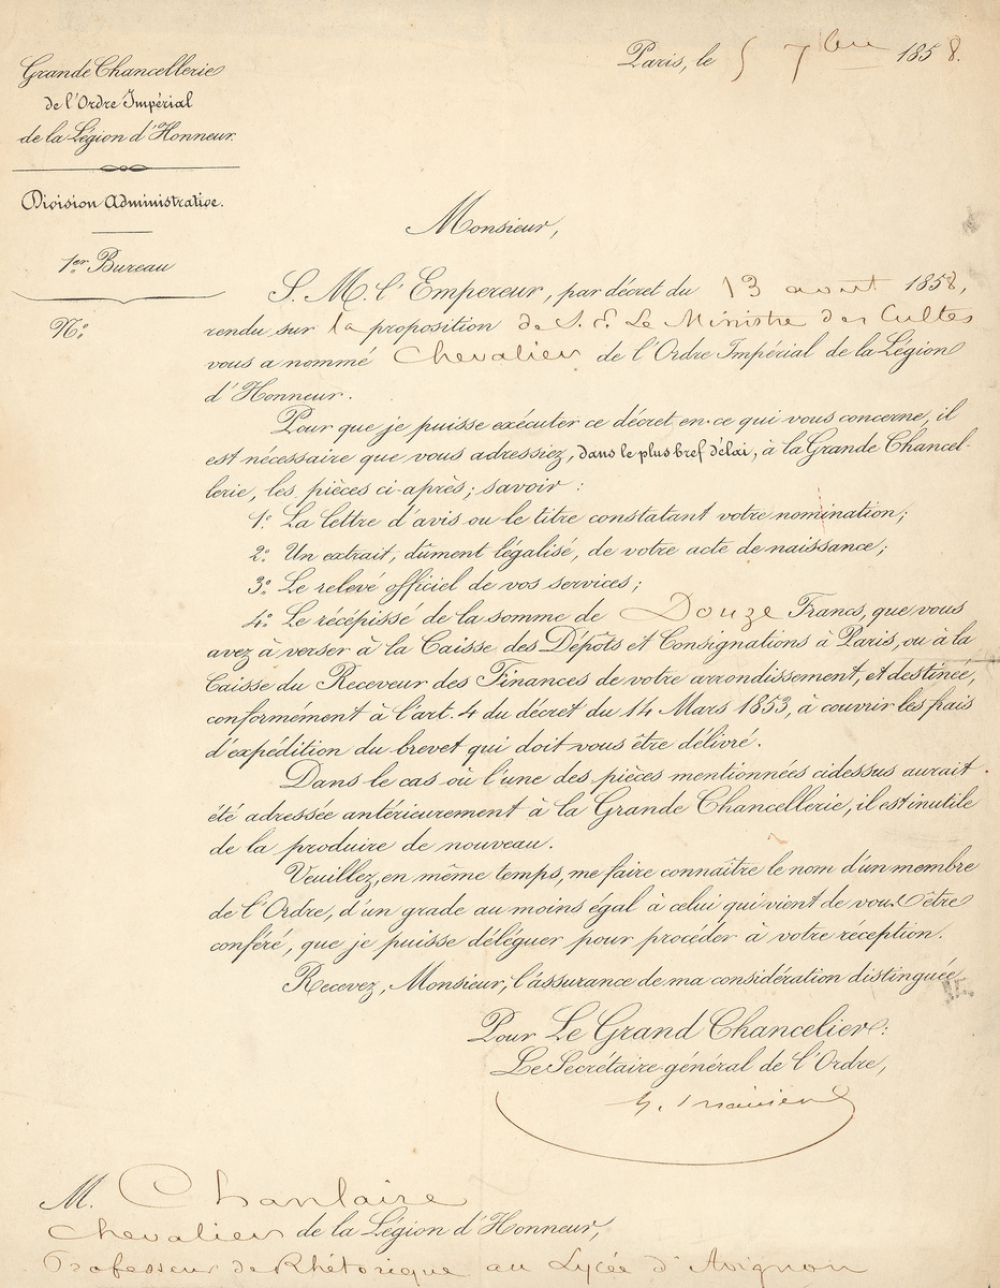 Grande Chancellerie
de l'Ordre Impérial
de la Légion d'Honneur.
Division Administrative.
1er Bureau
N°
Paris, le 5 7bre 1858.
Monsieur,
S. M. l'Empereur, par décret du 13 aout 1858,
rendu sur la proposition de S. E. Le Ministre des Cultes
vous a nommé Chevalier de l'Ordre Impérial de la Légion
d'Honneur.
Pour que je puisse exécuter ce décret en ce qui vous concerne, il
est nécessaire que vous adressiez, dans le plus bref délai, à la Grande Chancel-
lerie, les pièces ci-après; savoir :
1° La lettre d'avis ou le titre constatant votre nomination;
2° Un extrait, dûment légalisé, de votre acte de naissance;
3° Le relevé officiel de vos services;
4° Le récépissé de la somme de Douze Francs, que vous
avez à verser à la Caisse des Dépôts et Consignations à Paris, ou à la
Caisse du Receveur des Finances de votre arrondissement, et destinée,
conformément à l'art. 4 du décret du 14 Mars 1853, à couvrir les frais
d'expédition du brevet qui doit vous être délivré.
Dans le cas où l'une des pièces mentionnées cidessus aurait
été adressée antérieurement à la Grande Chancellerie, il est inutile
de la produire de nouveau.
Veuillez, en même temps, me faire connaître le nom d'un membre
de l'Ordre, d'un grade au moins égal à celui qui vient de vous être
conféré, que je puisse déléguer pour procéder à votre réception.
Recevez, Monsieur, l'assurance de ma considération distinguée.
Pour Le Grand Chancelier:
Le Secrétaire général de l'Ordre,
M. Chanlaire
Chevalier de la Légion d'Honneur,
Professeur de Rhétorique au Lycée d'Avignon